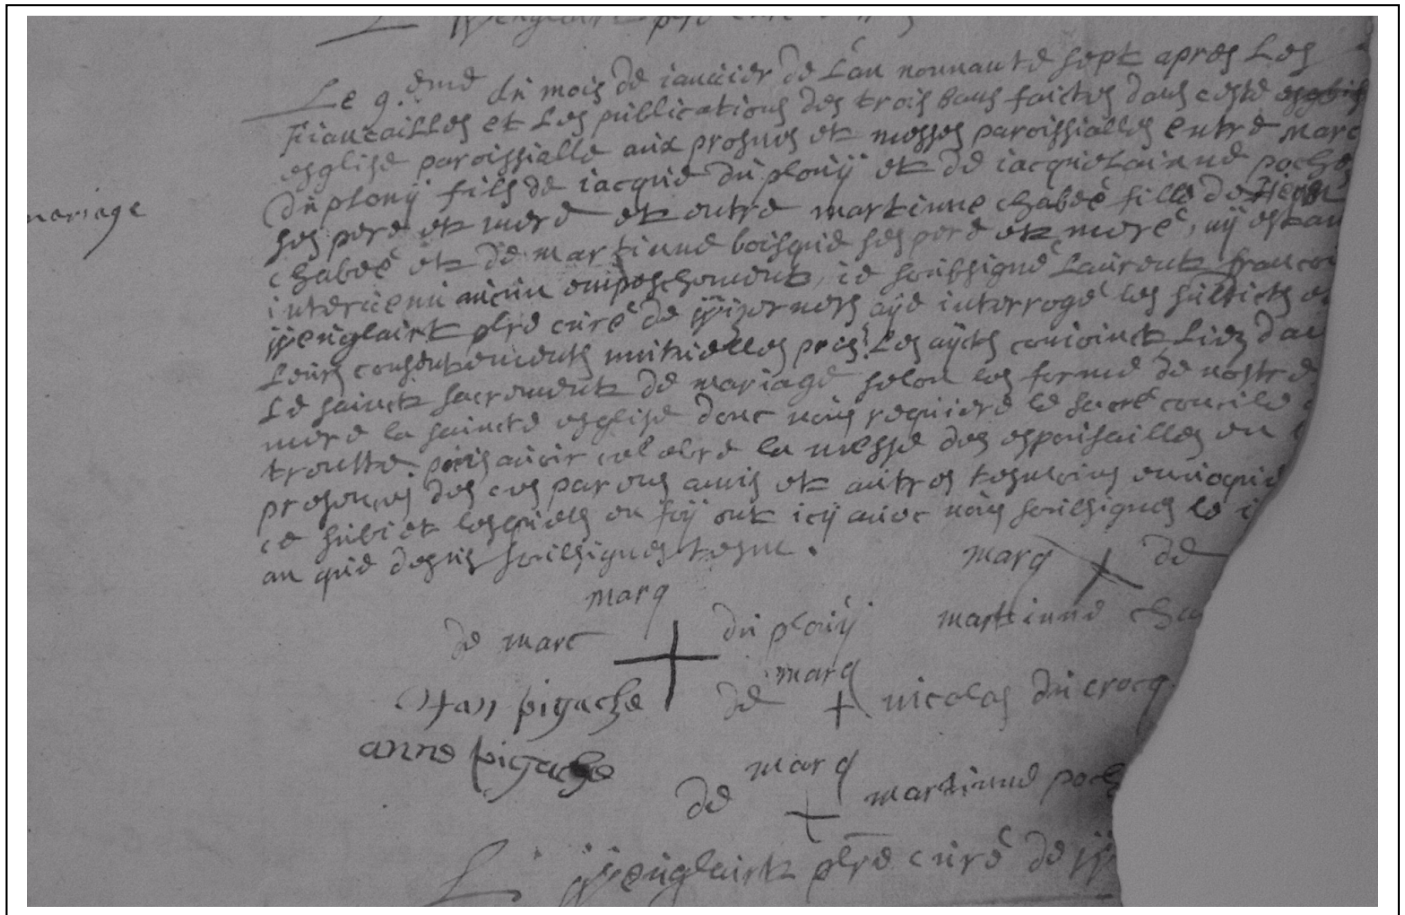 Le 9.eme du mois de ianvier de l'an nonnante sept apres les
fiancailles et les publications des trois bans faictes dans ceste
esglise paroissialle aux prosnes et messes paroissialles entre marc
du plouÿ fils de iacque du plouÿ et de iacquelainne poche
ses pere et mere et entre martinne chabeé fille de
chabeé et de martinne boisque ses pere et mere, nÿ estan
intervenu aucun empeschement, ie soubsigné Laurent francoi
pbre curé de aÿe interrogé les susdicts et
leurs consentements mutuelles pris les aÿts conioinct liez d'au
le sainct sacrement de mariage selon les forme de nostre
mere la saincte esglise donc nous requiere le sacré concile
troutte puis avoir celebre la messe des espousailles en
presences des ces parens amis et autres tesmoins
ce subiet lesquels en foÿ ont icÿ avec nous soubsignes le i
an que desus soubsignes tesm.
mariage
marq de
marq
de marc du plouÿ martinne cha
marq
pigache de nicolas du crocq
anne pigache
marq
de martinne poch
L pbre curé de